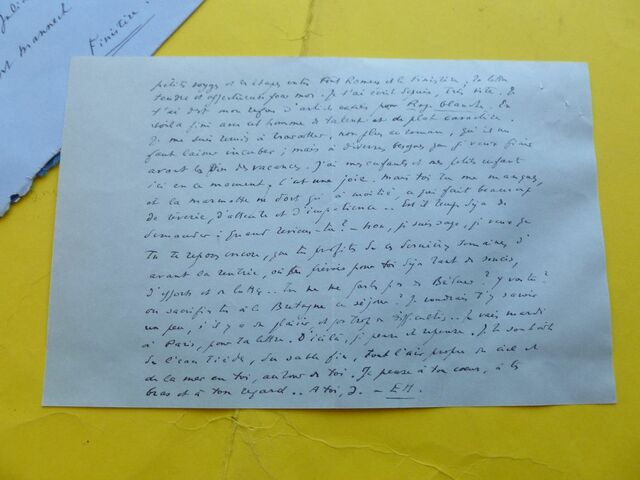 Julia
Finistère
petits voyages et les étapes entre Font Romeu et le Finistère, ta lettre
tendre et affectueuse pour moi. Je t'ai écrit depuis, très vite. Je
t'ai dit mon d'article pour Roge blanche. En
voilà fini avec cet homme de talent et de plat caractère.
Je me suis remis à travailler, non plus ce roman, qu'il me
faut laisser incuber; mais à diverses besognes que je veux finir
avant la fin des vacances. J'ai mes enfants et mes petits enfants
ici en ce moment, c'est une joie. Mais toi tu me manques,
et la marmotte ne dort qu'à moitié ce qui fait beaucoup
de rêverie, d'attente et d'impatience.. Est il temps déjà de
demander: quand reviens-tu? - Non, je suis sage, je veux que
tu te reposes encore, que tu profites de ces dernières semaines d'
avant la rentrée, où je prévois pour toi déjà tant de soucis,
d'efforts et de luttes.. Tu ne me parles pas de Y vas tu?
ou sacrifies tu à la Bretagne ce séjour? Je voudrais t'y savoir
un peu, s'il y a du plaisir et pas trop de difficultés.. Je vais mardi
à Paris, pour ta lettre. D'ici là, je pense et repense. Je te souhaite
de l'eau tiède, du sable fin, tout l'air propre du ciel et
de la mer en toi, autour de toi. Je pense à ton cœur, à tes
bras et à ton regard.. A toi, J. - EM.